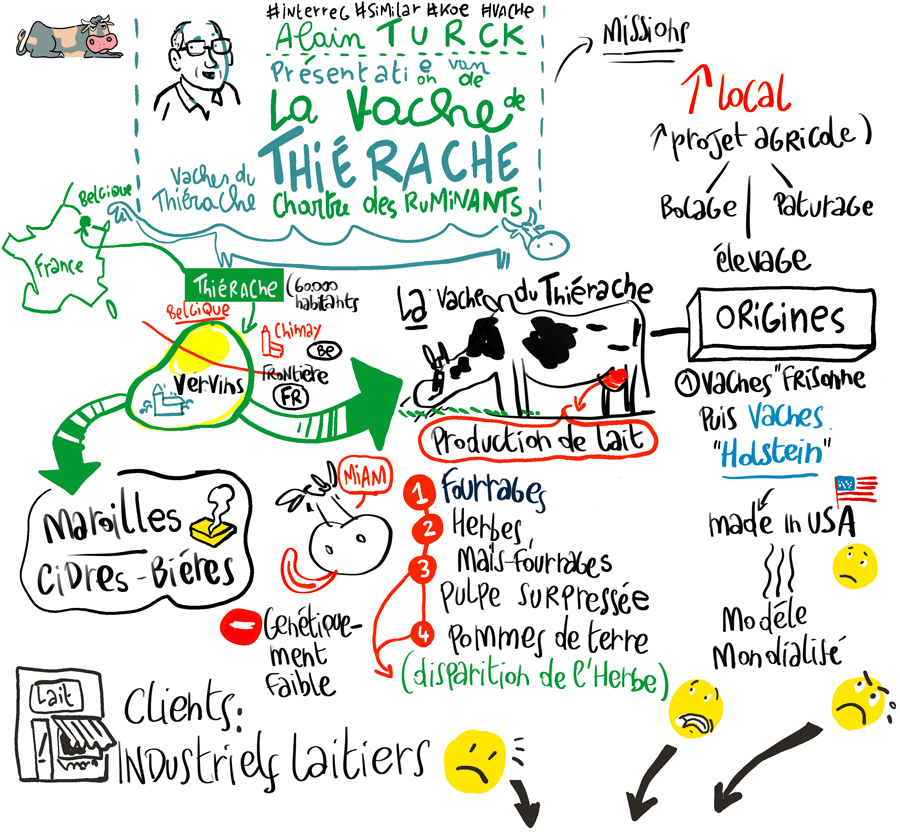 #interreg #Similar #Koe #VACHE
Alain TURCK
Présentatie van
on de
La Vache de
THIÉRACHE
Vaches du
Thiérache
Chartre des RUMINANTS
Missions
↑ local
↑ projet agricole)
Bocage | Paturage
élevage
Belgique
France
THIÉRACHE
(60.000
habitants
BELGIQUE
Chimay
BE
FRONtière
FR
Vervins
La Vache on du Thiérache
ORIGINES
Production de lait
① Vaches "Frisonne
Puis Vaches
"Holstein"
made in USA
Modèle
Mondialisé
Maroilles
Cidres - Bières
MIAM
Génétique-
ment
faible
1 Fourrages
2 Herbes,
3 Maïs-fourrages
PULPE SURPRESSÉE
4 Pommes de terre
(disparition de l'Herbe)
Lait
Clients:
INDustriels Laitiers